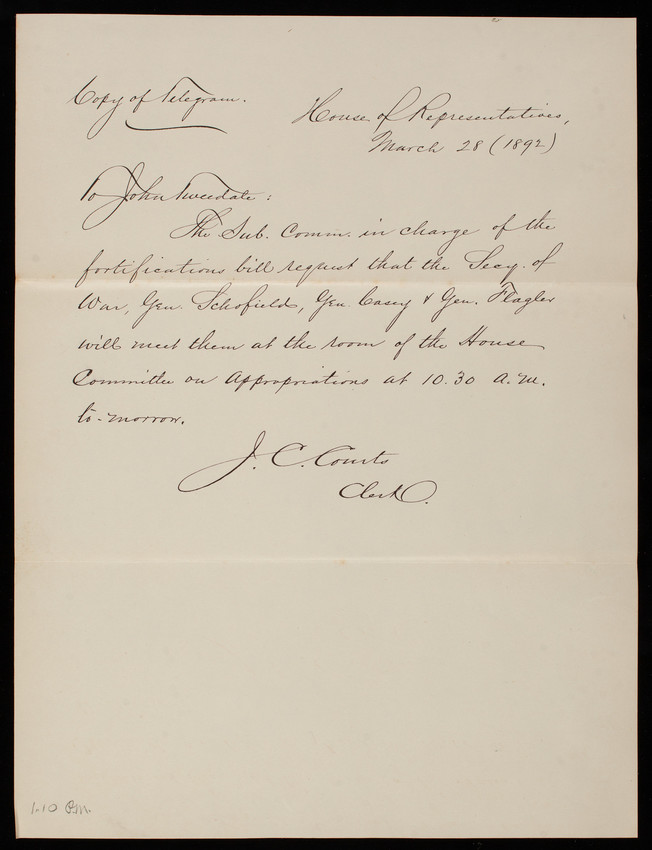 Copy of Telegram.
House of Representatives,
March 28 (1892)
To John Tweedale:
The Sub. Comm. in charge of the
fortifications bill request that the Secy. of
War, Gen. Schofield, Gen. Casey & Gen. Flagler
will meet them at the room of the House
Committee on Appropriations at 10.30 a.m.
to-morrow.
J. C. Courts
Clerk.
1.10 P.M.